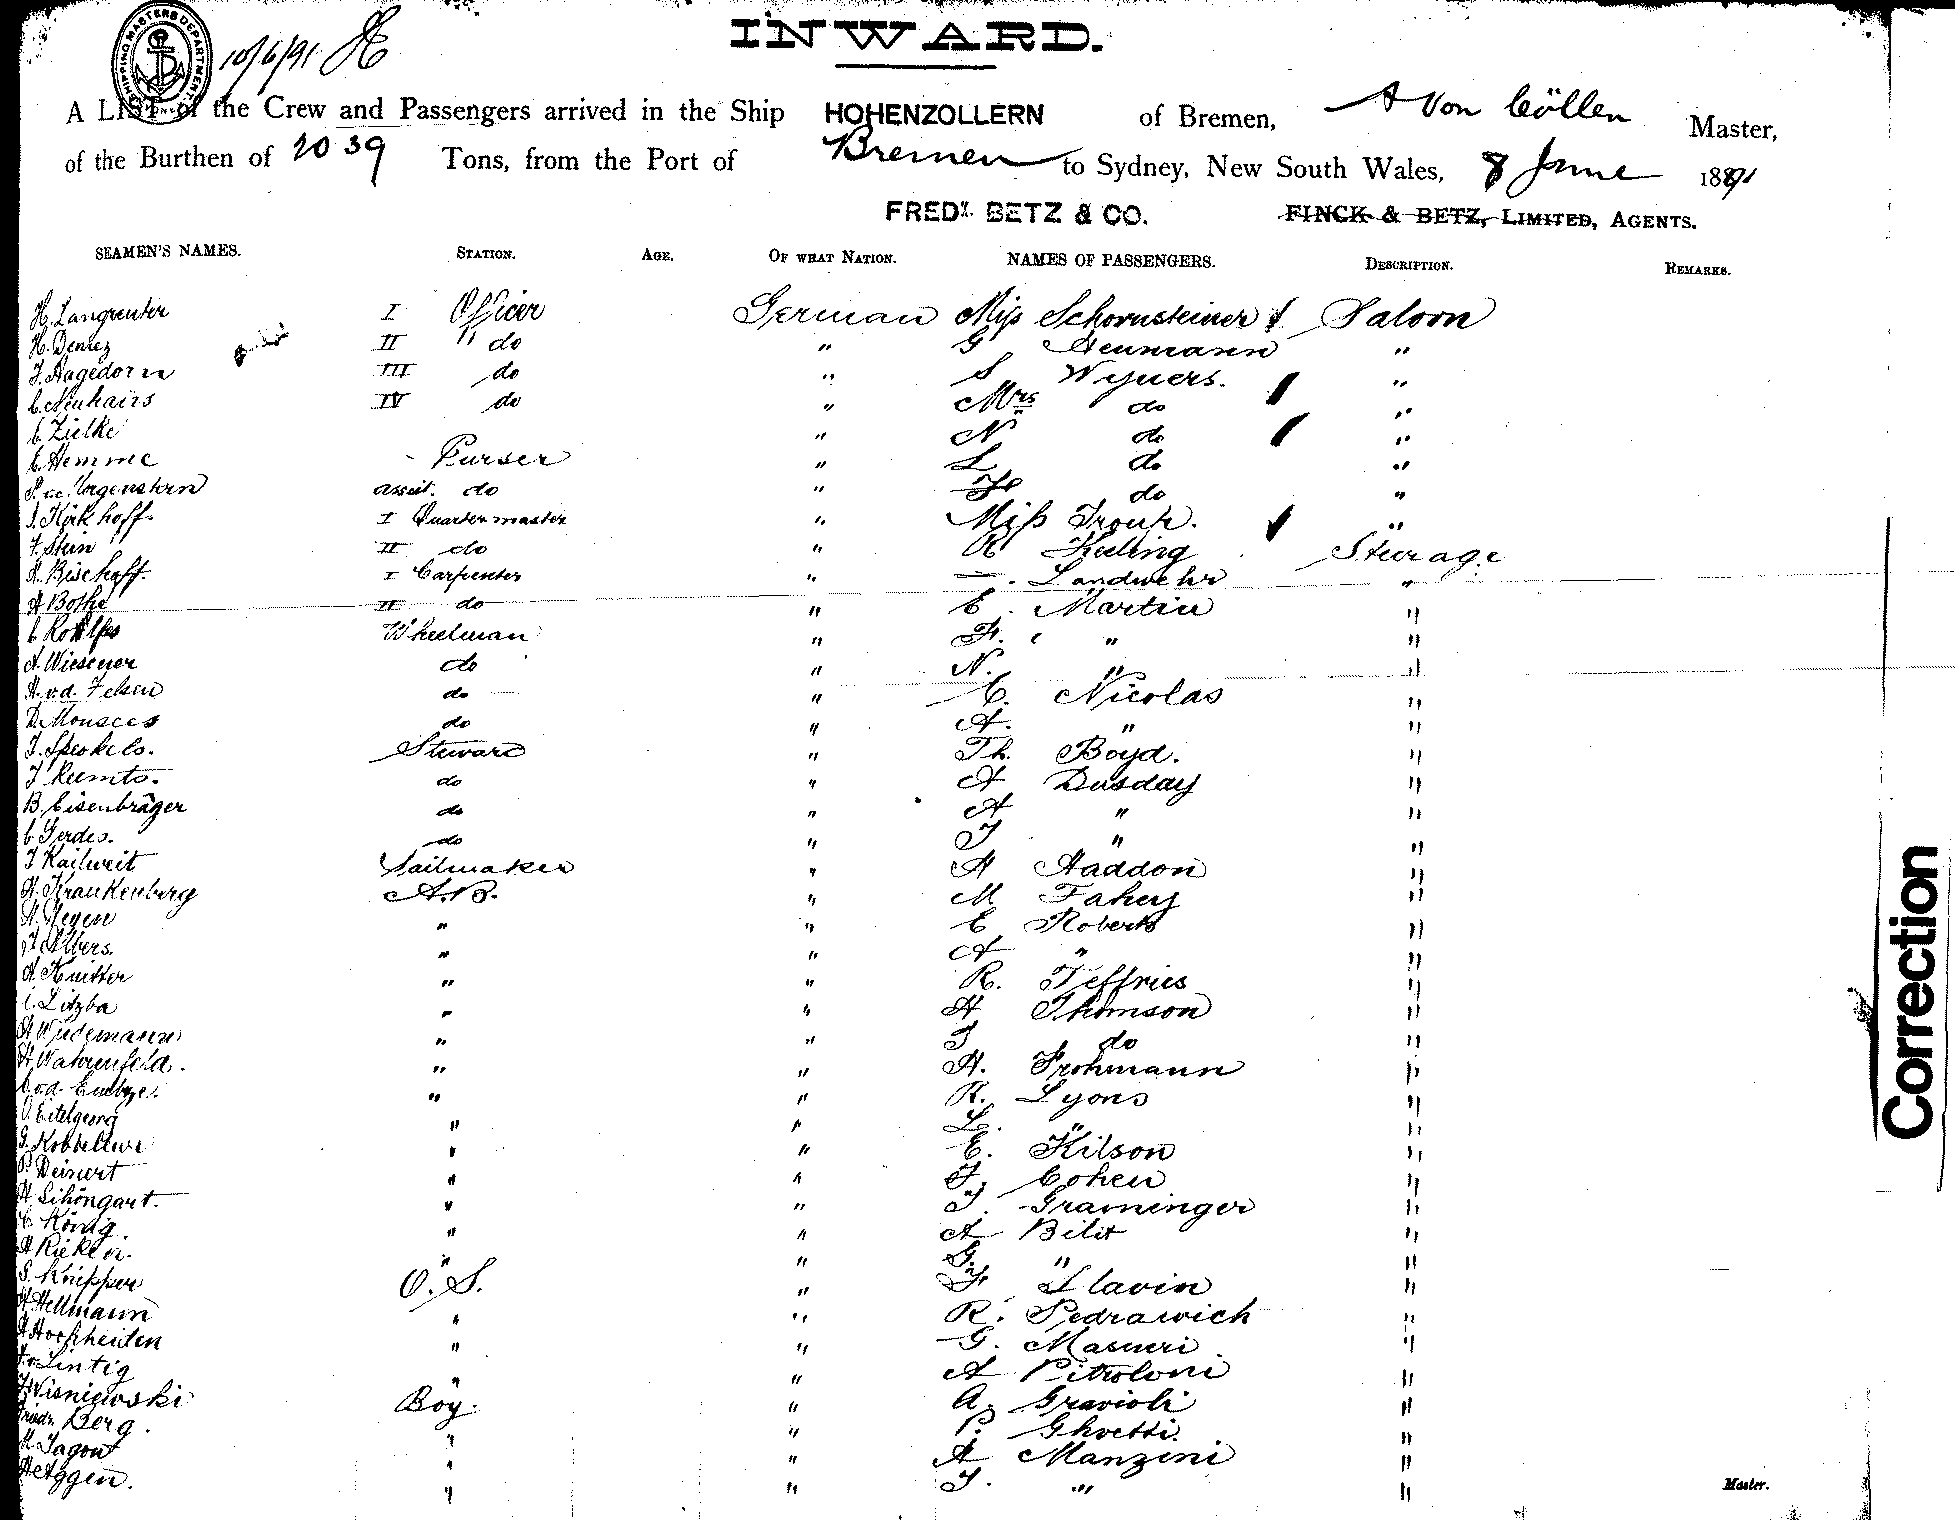 INWARD.
SHIPPING MASTERS DEPARTMENT
10/6/91
A LIST of the Crew and Passengers arrived in the Ship HOHENZOLLERN of Bremen, A von Cöllen Master,
of the Burthen of 2039 Tons, from the Port of Bremen to Sydney, New South Wales, 8 June 1891
FREDK. BETZ & CO. FINCK & BETZ, LIMITED, AGENTS.
SEAMEN'S NAMES. STATION. AGE. OF WHAT NATION. NAMES OF PASSENGERS. DESCRIPTION. REMARKS.
H. Langreuter I Officer German Miss Schornsteiner Saloon
II " do " G Neumann "
F. Hagedorn III do " S Wyners. "
C. Neuhairs IV do " Mrs do "
C. Zielke " N do "
C. Hemme Purser " L do "
assist. do " do "
J. Kirkhoff. I Quartermaster " Miss Troup. "
F. Stein II do " R Keeling Steerage
H. Bischoff. I Carpenter " —. Landwehr "
A Bothe II do " E. Martin "
C Rohlfs Wheelman " F. " "
A. Wiesener do " N. " "
H. v.d. Felsen do " C. Nicolas "
D. Monsees do " A. " "
J. Speckels. Steward " Th. Boyd. "
J Reemts. do " A Dusday "
B. Eisenbräger do " A " "
C Gerdes. do " J " "
J Kailweit Sailmaker " H Haddon "
H. Krankenberg A.B. " M Fahey "
H. Meyen " " E Roberts "
Albers. " " A " "
" " R. Jeffries "
Litzba " " H Thomson "
H Wiedemann " " J do "
H. Wahrenfeld. " " H. Frohmann "
" " R. Lyons "
O. Eitelgeorg " " L. " "
" " E. Kilson "
P. Deinert " " J. Cohen "
H Schöngart. " " J. Graminger "
C. König " " A Bilit "
" " G. " "
S. Knipper O. S. " F. Slavin "
H Hellmann " " R. Pedrawich "
" " G. Masneri "
v. Lintig " " A Pitroloni "
J Wisniewski Boy. " A. Gravioli "
Friedr. Berg. " " P. Ghvetti. "
M. Jagow " " A Manzini "
H Aggen. " " J. " "
Master.
Correction